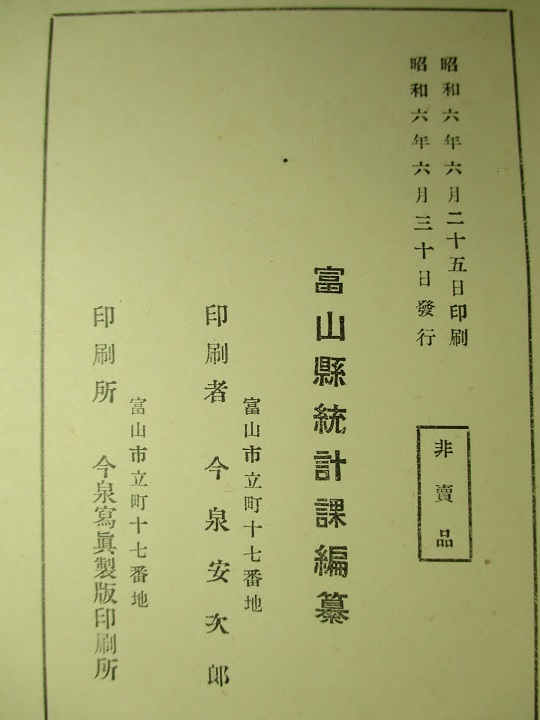 昭和六年六月二十五日印刷
昭和六年六月三十日發行
非賣品
富山縣統計課編纂
富山市立町十七番地
印刷者 今泉安次郎
富山市立町十七番地
印刷所 今泉寫眞製版印刷所